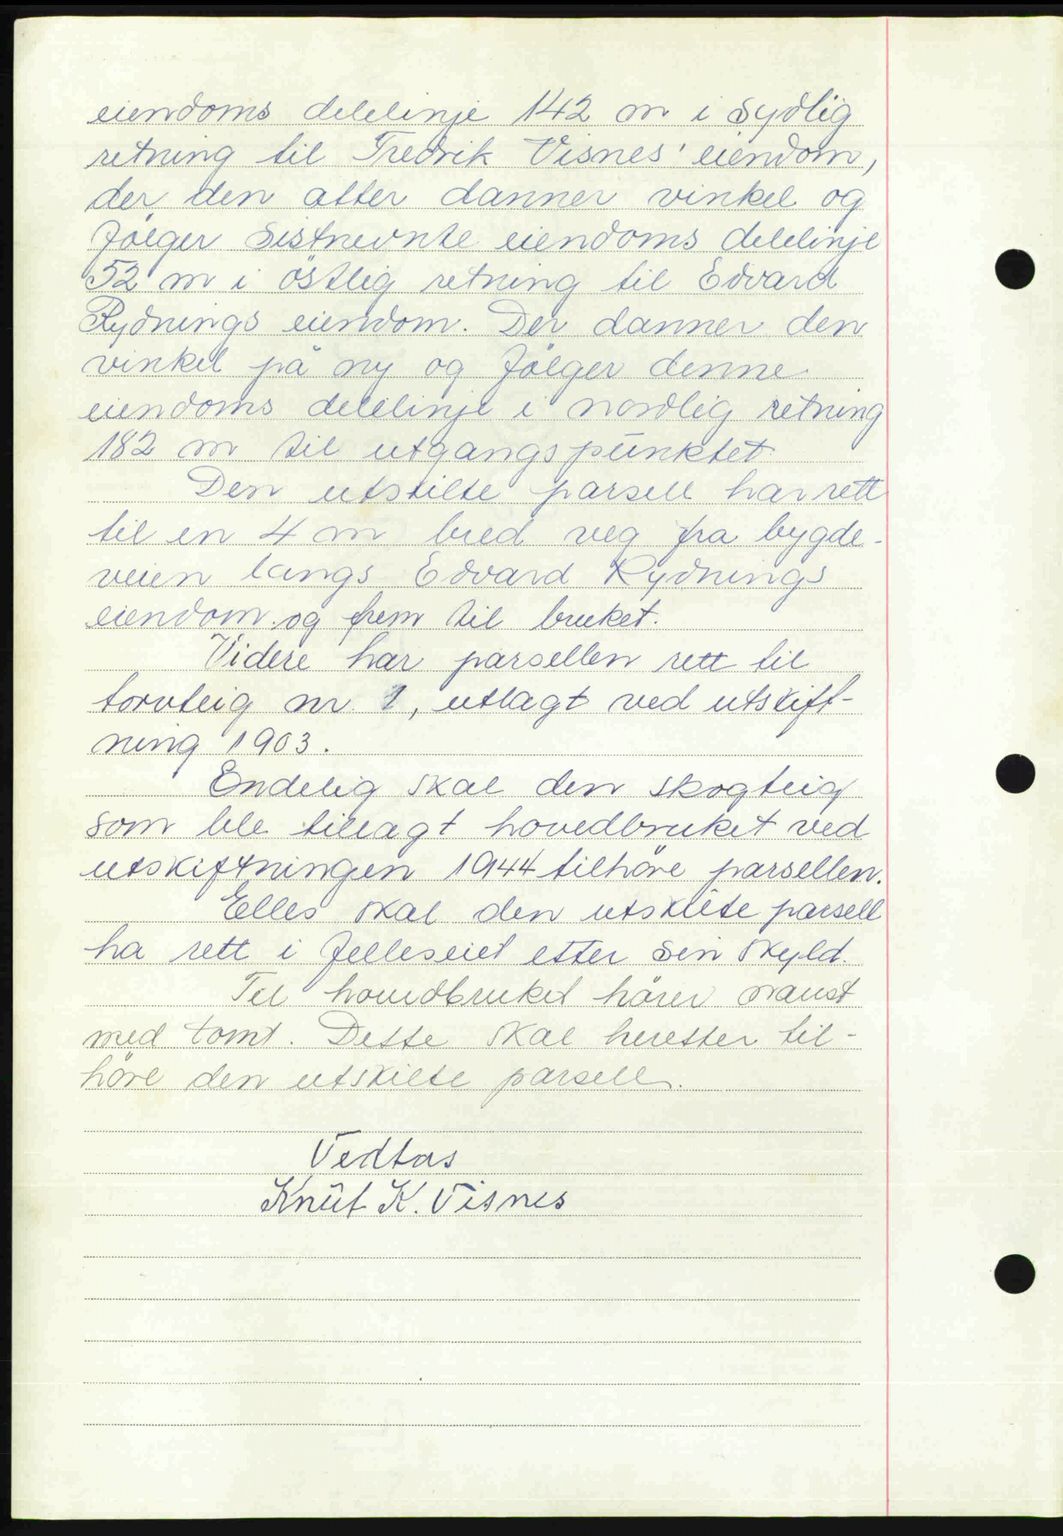 eiendoms delelinje 142 m i sydlig
retning til Fredrik Visnes' eiendom,
der den atter danner vinkel og
fölger sistnevnte eiendoms delelinje
52 m i östlig retning til Edvard
Rydnings eiendom. Der danner den
vinkel på ny og fölger denne
eiendoms delelinje i nordlig retning
182 m til utgangspunktet.
Den utskilte parsell har rett
til en 4 m bred veg fra bygde-
veien langs Edvard Rydnings
eiendom og frem til bruket.
Videre har parsellen rett til
torvteig nr 1, utlagt ved utskift-
ning 1903.
Endelig skal den skogteig
som ble tillagt hovedbruket ved
utskiftningen 1944 tilhöre parsellen.
Elles skal den utskilte parsell
ha rett i felleseiet etter sin skyld.
Til hovedbruket hörer naust
med tomt. Dette skal heretter til-
höre den utskilte parsell.
Vedtas
Knut K. Visnes